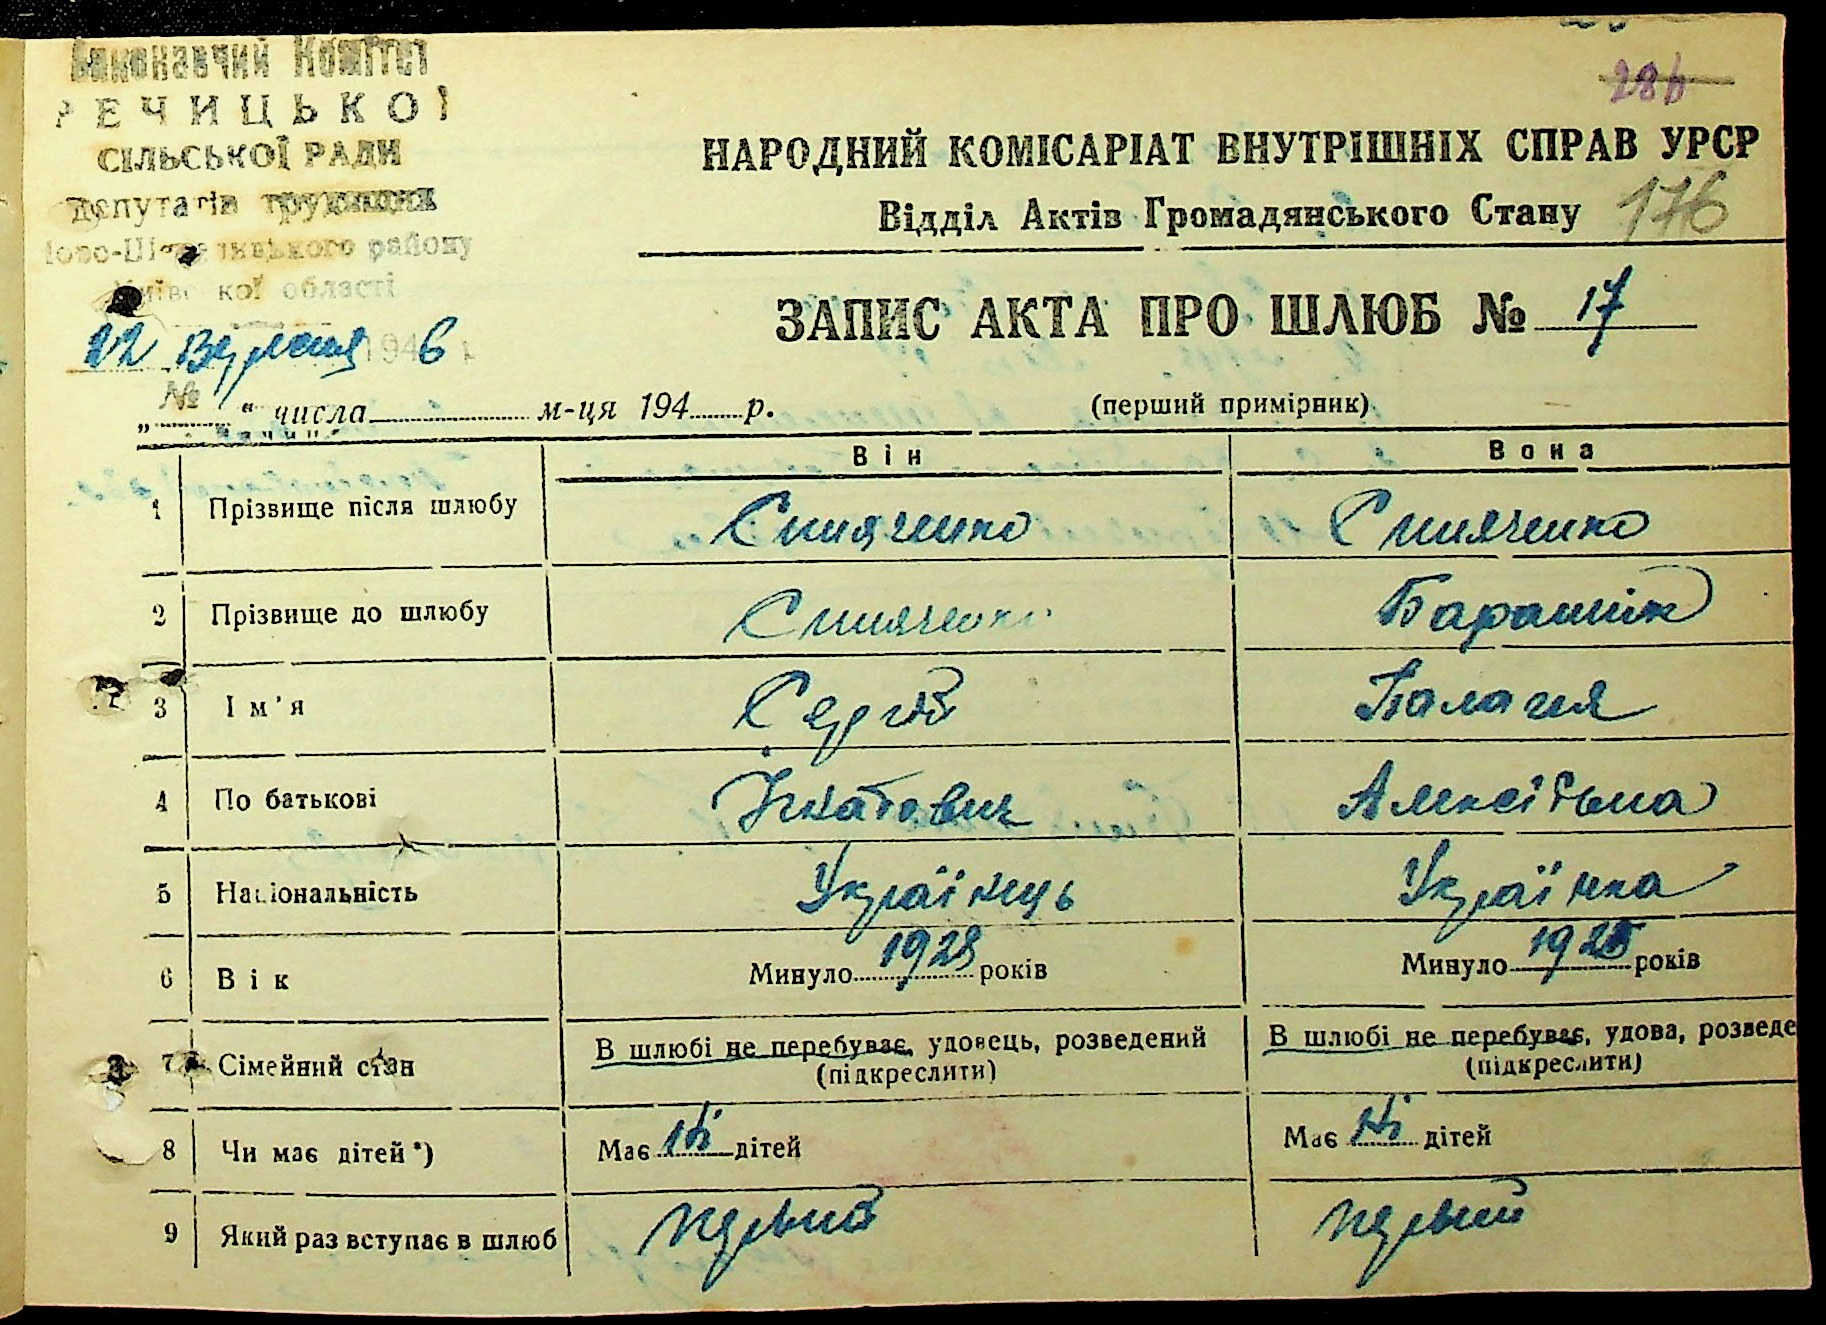 Виконавчий Комітет
РЕЧИЦЬКОЇ
СІЛЬСЬКОЇ РАДИ
депутатів трудящих
району
Київської області
22 Вересня 1946 р.
№
286
НАРОДНИЙ КОМІСАРІАТ ВНУТРІШНІХ СПРАВ УРСР
Відділ Актів Громадянського Стану 176
ЗАПИС АКТА ПРО ШЛЮБ № 17
„ “ числа м-ця 194 р. (перший примірник)
Він Вона
1 Прізвище після шлюбу
2 Прізвище до шлюбу
3 Ім'я Сергій Палагия
4 По батькові Ігнатович
5 Національність Українець Українка
6 Вік Минуло 1923 років Минуло 1925 років
7 Сімейний стан В шлюбі не перебуває, удовець, розведений В шлюбі не перебуває, удова, розведе
(підкреслити) (підкреслити)
8 Чи має дітей*) Має ні дітей Має ні дітей
9 Який раз вступає в шлюб первий первий